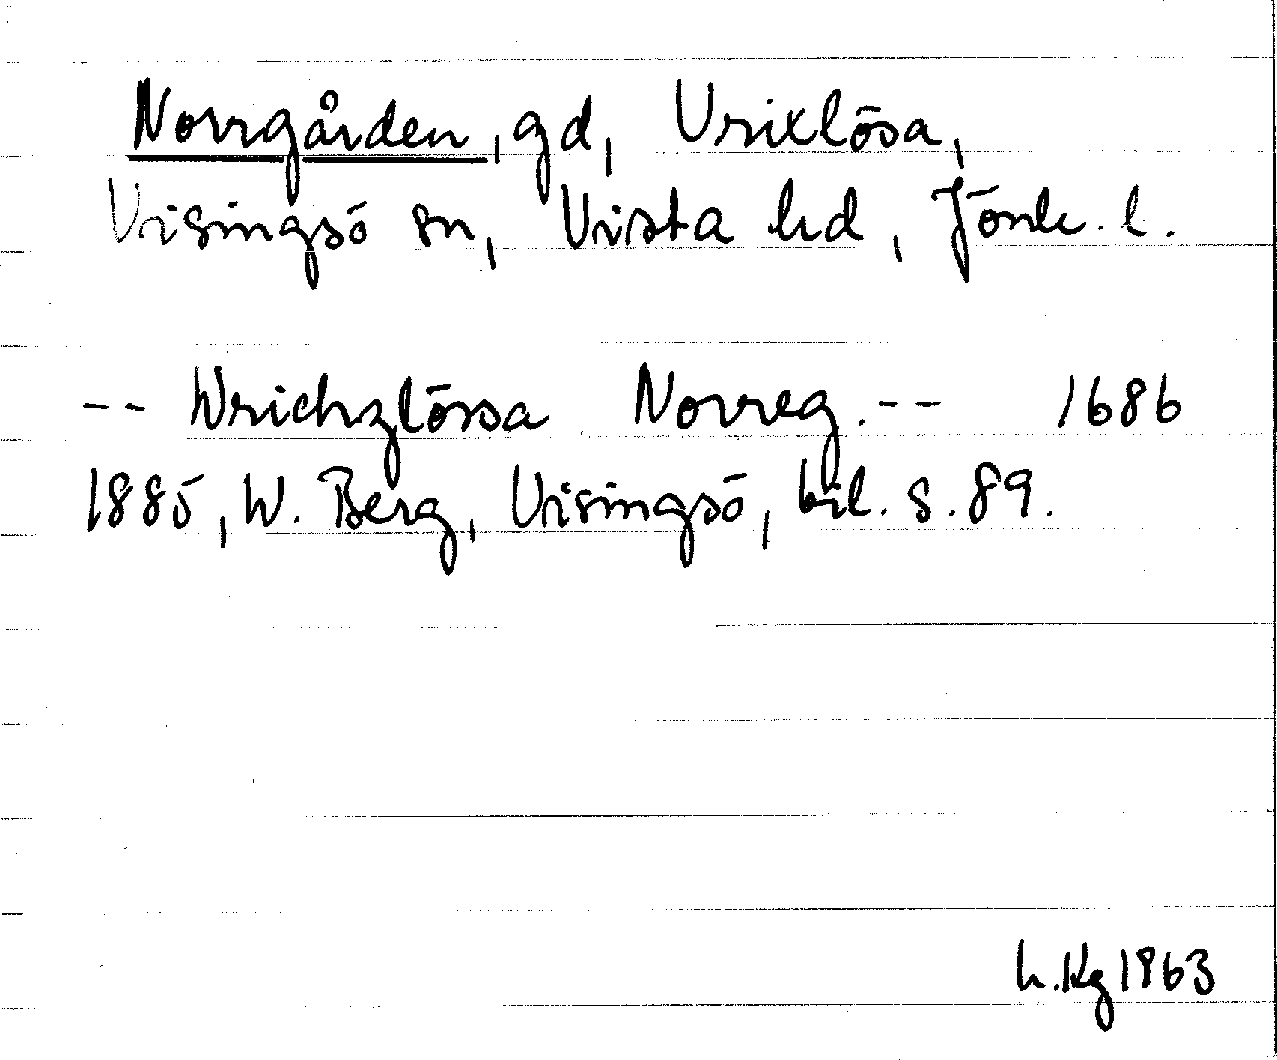 Norrgården, gd, Vrixlösa,
Visingsö sn, Vista hd, Jönk. l.
-- Wrichzlössa Norreg. -- 1686
1885, W. Berg, Visingsö, bil. s. 89.
h. Kg 1963